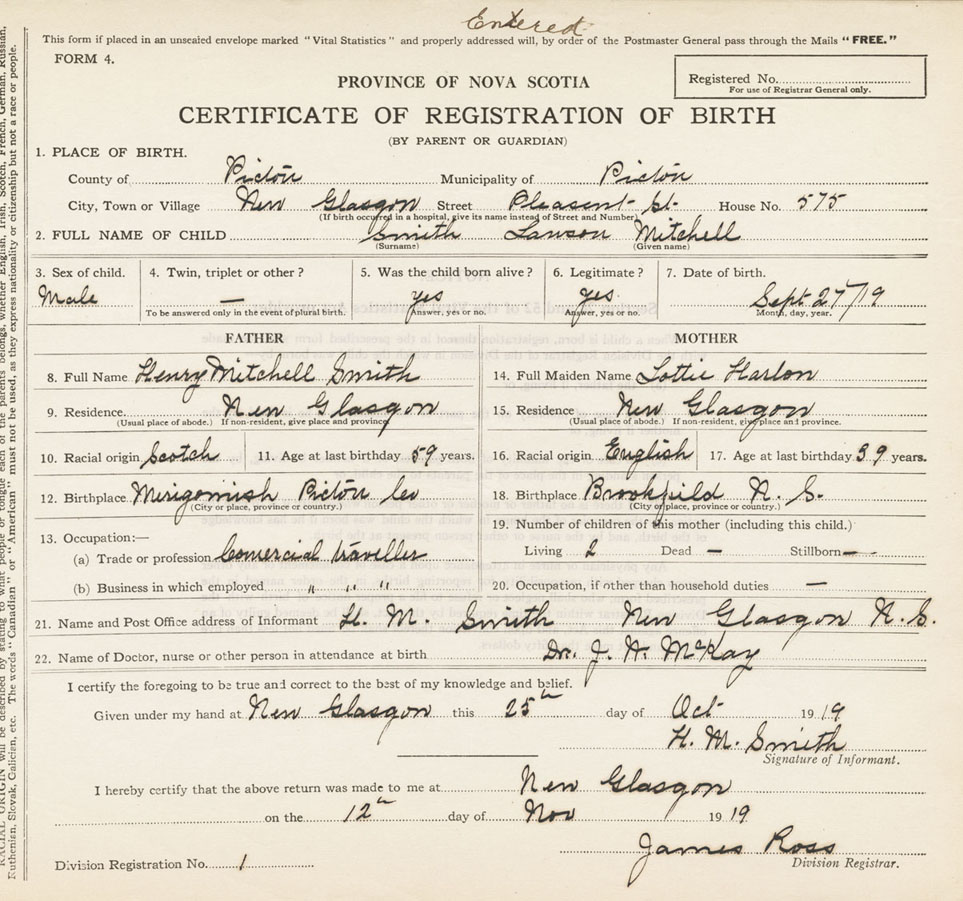 Entered
This form if placed in an unsealed envelope marked "Vital Statistics" and properly addressed will, by order of the Postmaster General pass through the Mails "FREE."
FORM 4.
Registered No.
For use of Registrar General only.
PROVINCE OF NOVA SCOTIA
CERTIFICATE OF REGISTRATION OF BIRTH
(BY PARENT OR GUARDIAN)
1. PLACE OF BIRTH.
County of Pictou Municipality of Pictou
City, Town or Village New Glasgow Street Pleasent St. House No. 575
(If birth occurred in a hospital, give its name instead of Street and Number)
2. FULL NAME OF CHILD Smith Lawson Mitchell
(Surname) (Given name)
3. Sex of child. 4. Twin, triplet or other? 5. Was the child born alive? 6. Legitimate? 7. Date of birth.
Male — yes yes Sept 27/19
To be answered only in the event of plural birth. Answer, yes or no. Answer, yes or no. Month, day, year.
FATHER MOTHER
8. Full Name Henry Mitchell Smith 14. Full Maiden Name Lottie Harlow
9. Residence New Glasgow 15. Residence New Glasgow
(Usual place of abode.) If non-resident, give place and province (Usual place of abode.) If non-resident, give place and province.
10. Racial origin Scotch 11. Age at last birthday 59 years. 16. Racial origin English 17. Age at last birthday 39 years.
12. Birthplace Merigomish Pictou Co 18. Birthplace Brookfield N. S.
(City or place, province or country.) (City or place, province or country.)
19. Number of children of this mother (including this child,)
13. Occupation:—
(a) Trade or profession Comercial traveller Living 2 Dead — Stillborn —
(b) Business in which employed " " " 20. Occupation, if other than household duties —
21. Name and Post Office address of Informant H. M. Smith New Glasgow N. S.
22. Name of Doctor, nurse or other person in attendance at birth Dr. J. W. McKay
I certify the foregoing to be true and correct to the best of my knowledge and belief.
Given under my hand at New Glasgow this 25th day of Oct 1919
H. M. Smith
Signature of Informant.
I hereby certify that the above return was made to me at New Glasgow
on the 12th day of Nov 1919
James Ross
Division Registration No. 1 Division Registrar.